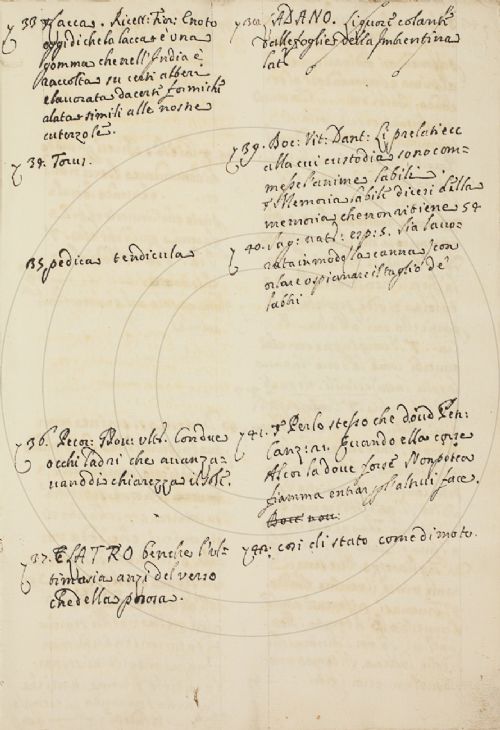 33. Lacca. Ricett: Fior: E noto
oggidì che la lacca è una
gomma che nell'India è
raccolta su certi alberi
e lavorata da certe formiche
alate simili alle nostre
cuterzole.
34. Torus.
35. pedica tendicula
36. Pecor: Nov: ult: Con due
occhi ladri che avanza-
van di chiarezza il sole.
37. LATRO benche l'ul-
tima sia anzi del verso
che della prosa.
LADANO. Liquore colante
dalle foglie della Imbrentina
lat:
39. Boc: Vit: Dant: Li prelati ec
alla cui custodia sono com-
messe l'anime labili.
Memoria labile dicesi della
memoria che non ritiene 54
40. Sag: nat: esp: 5. Sia lavo-
rata in modo la canna, con
orlare o spianare il taglio de'
labbri
41. Per lo stesso che dove Pet:
Canz: Quando ella corse
Al cor là dove forse Non potea
fiamma entrar per altrui face.
42. così di stato come di moto.